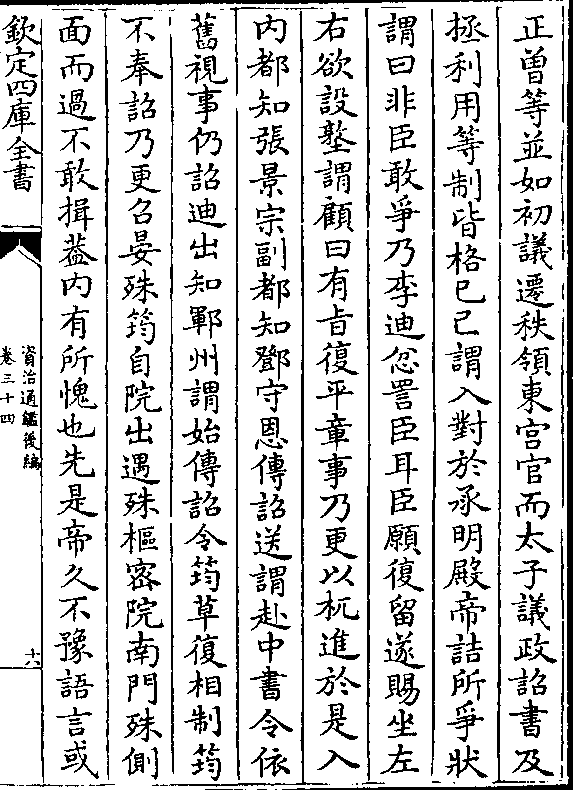 正曽等並如初議遷秩領東宮官而太子議政詔書及
拯利用等制皆格已已謂入對於承明殿帝詰所爭狀
謂曰非臣敢爭乃李迪忿詈臣耳臣願復留遂賜坐左
右欲設墪謂顧曰有㫖復平章事乃更以杌進於是入
内都知張景宗副都知鄧守恩傳詔送謂赴中書令依
舊視事仍詔迪出知鄆州謂始傳詔令筠草復相制筠
不奉詔乃更召晏殊筠自院出遇殊樞密院南門殊側
面而過不敢揖葢内有所愧也先是帝久不豫語言或
欽定四庫全書
資治通鑑後編
卷三十四
十六